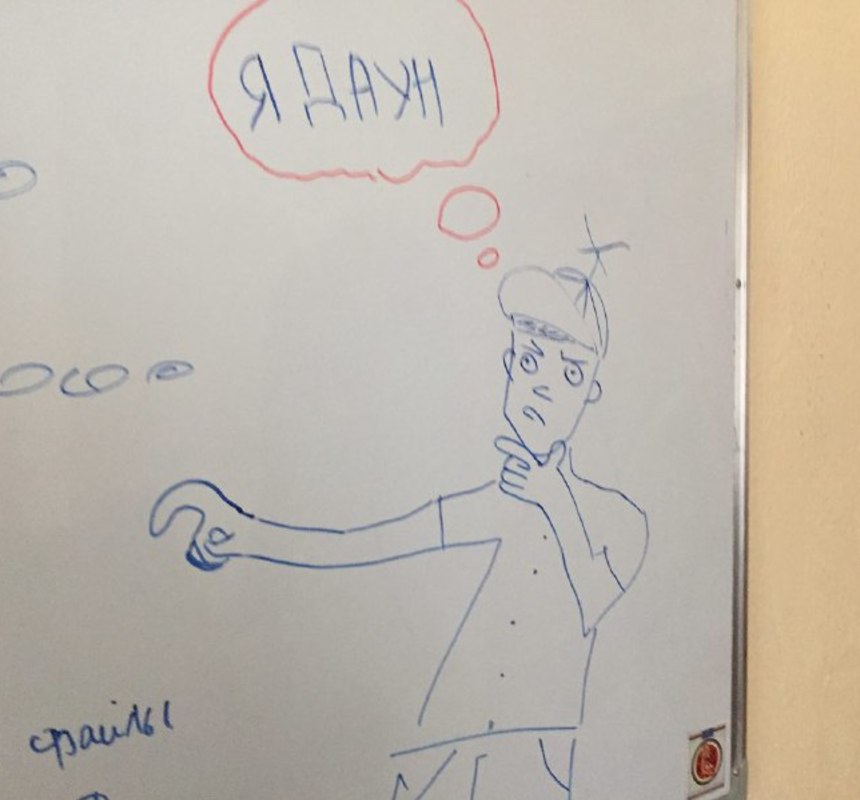 Я ДАУН
файлы